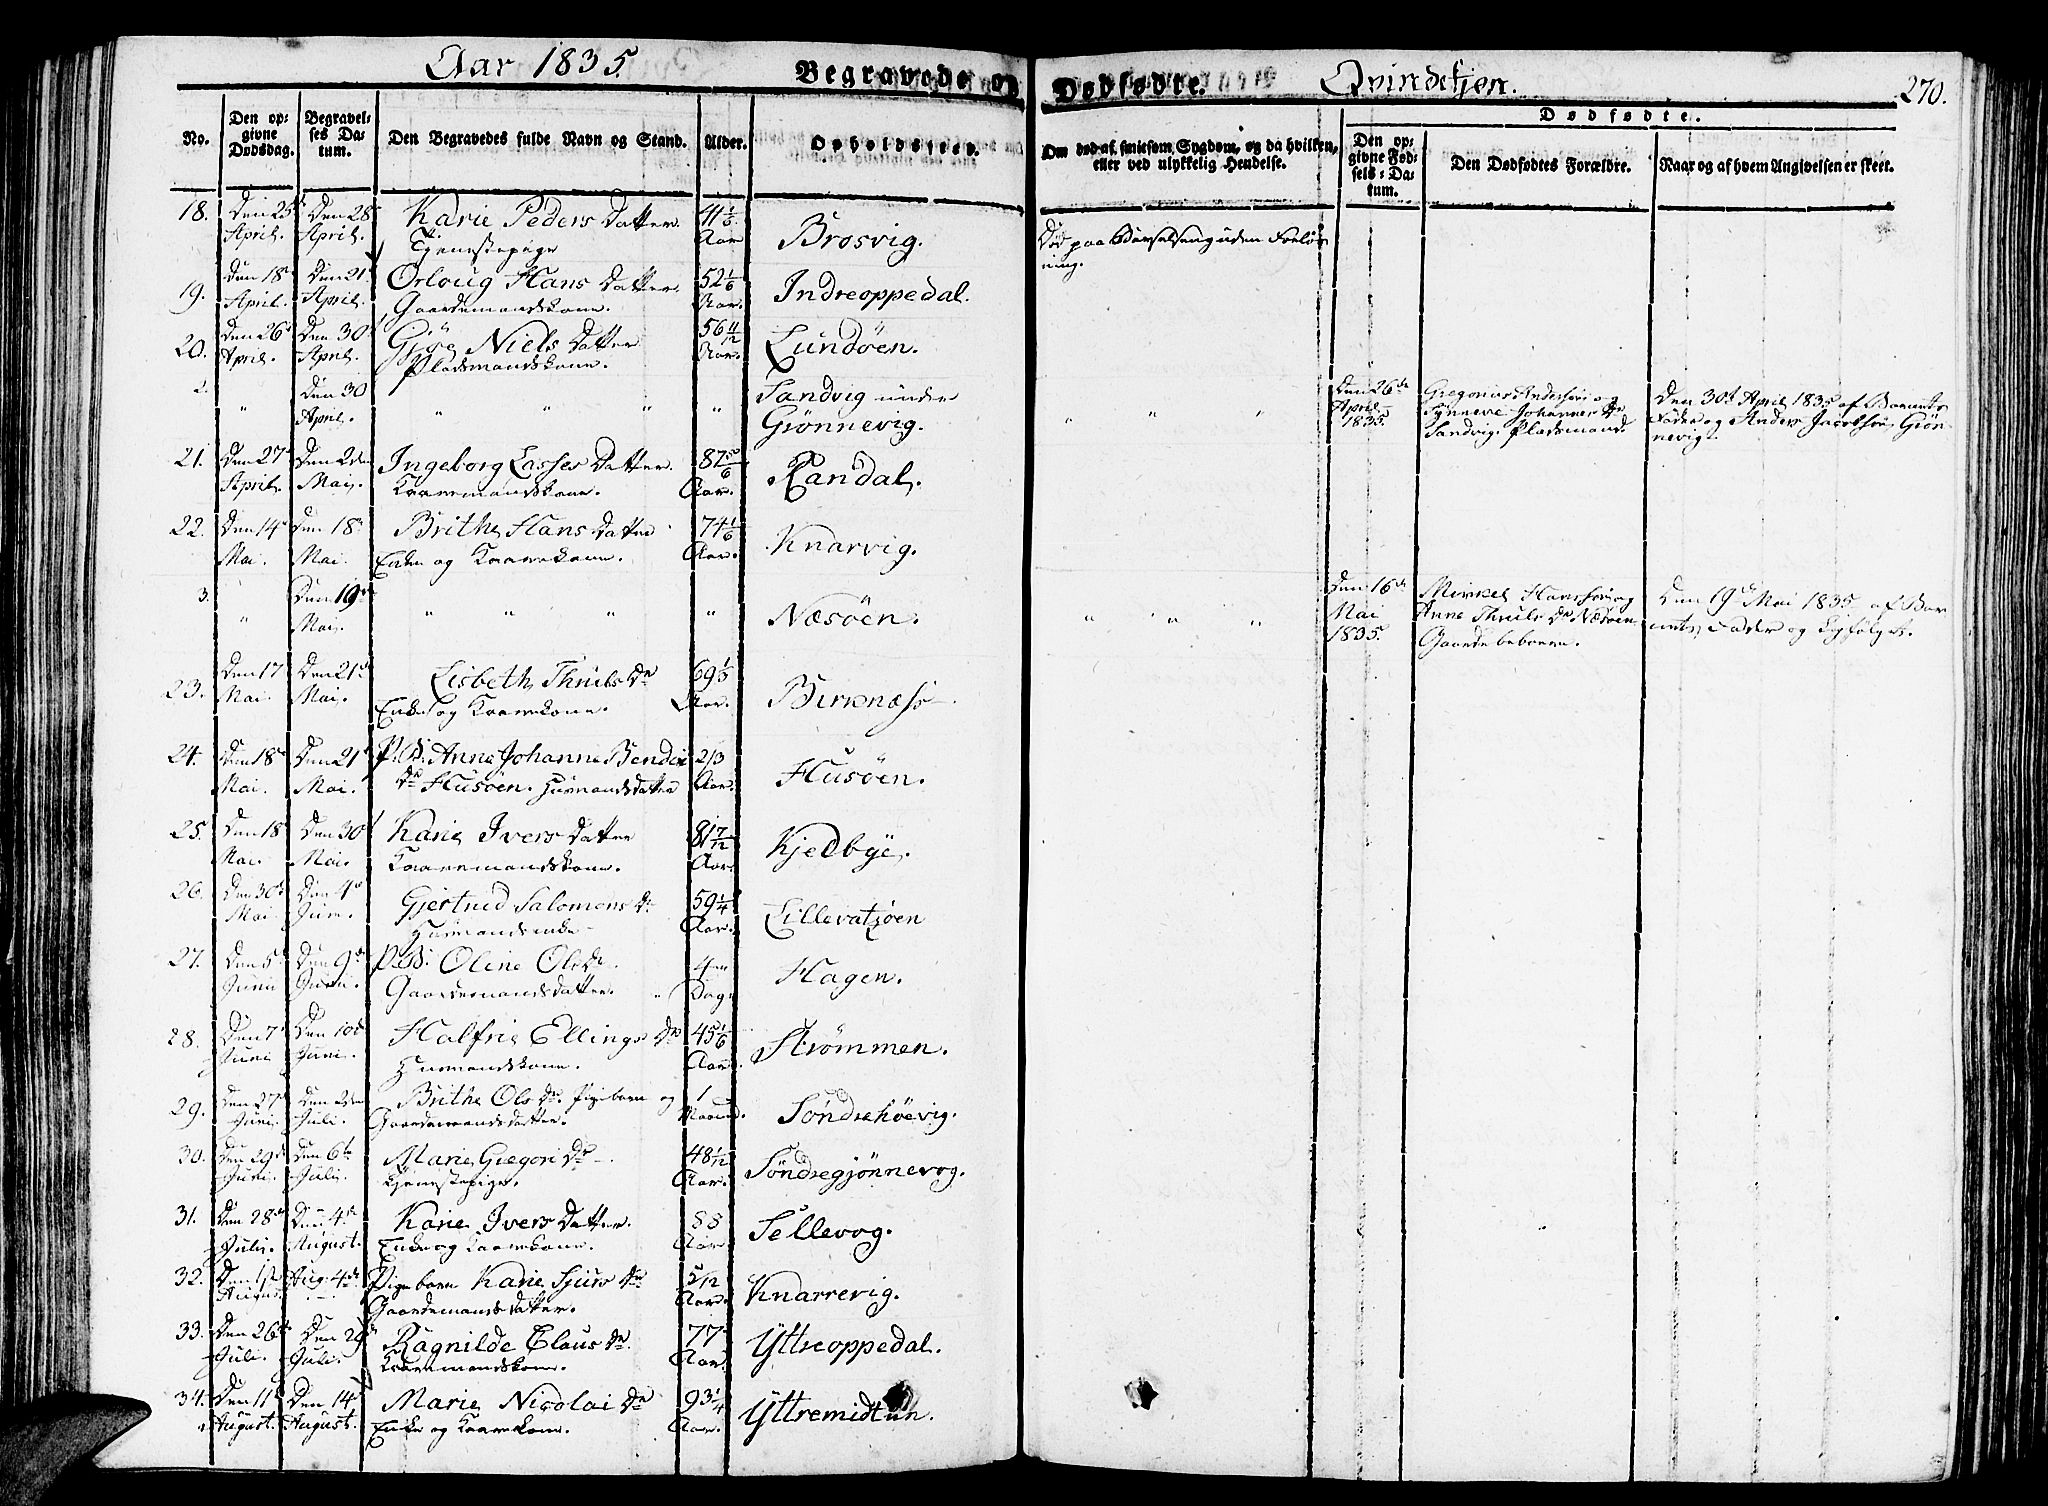 Aar 1835.
Begravede og
Dødfødte.
Qvindekjøn.
270.
No.
Den opgivne Dødsdag.
Begravelses Datum.
Den Begravedes fulde Navn og Stand.
Alder.
Opholdssted.
Om død af smitsom Sygdom, og da hvilken,
eller ved ulykkelig Hendelse.
Dødfødte.
Den opgivne Fødsels-Datum.
Den Dødfødtes Forældre.
Naar og af hvem Angivelsen er skeet.
18. Den 25 Den 28 Karie Peders Datter 41 1/6
April. April. Tjenestepige Aar Brosvig. Død paa Barselseng uden Forløs-
ning.
19. Den 18 Den 21 Orloug Hans Datter 52 1/6
April. April. Gaardemandskone. Aar. Indreoppedal.
20. Den 26 Den 30 Gjöe Niels Datter 56 11/12
April. April. Pladsmandskone. Aar. Lundøen.
2. " Den 30 " " " " Sandvig under " " " Den 26de Gregorius Anderssøn og Den 30t April 1835 af Barnets
April. Grønnevig. April 1835. Synneve Johannes Dr Fader og Anders Jacobsøn Grøn-
Sandvig. Pladsmand. nevig.
21. Den 27 Den 2den Ingeborg Lasses Datter. 87 5/6
April. Mai. Kaaremandskone. Aar. Randal.
22. Den 14 Den 18 Brithe Hans Datter 74 1/6
Mai. Mai. Enke og Kaarekone. Aar. Knarvig.
3. " Den 19 " " " " Næsøen. " " " Den 16de Mikkel Hanssøn og Den 19d Mai 1835 af Bar-
Mai. Mai Anne Thruls Dr Næsøen nets Fader og Ligfølget.
1835. Gaardebeboere.
23. Den 17 Den 21 Lisbeth Thruls Dr 69 1/3
Mai. Mai. Enke og Kaarekone. Aar. Birknæss
24. Den 18 Den 21 P. B. Anne Johanne Bendix 2/3
Mai. Mai. Dr Husøen. Huusmandsdatter Aar. Husøen.
25. Den 18 Den 30 Karie Ivers Datter 81 7/12
Mai. Mai. Kaaremandskone. Aar. Kjedbye.
26. Den 30 Den 4 Gjertrud Salomons Dr 59 1/4
Mai. Juni. Huusmandsenke Aar. Lillevatzøen
27. Den 5 Den 9 P. B. Oline Ols Dr 4
Juni Juni. Gaardemandsdatter. Dage Hagen.
28. Den 7 Den 10d Halfrie Ellings Dr 45 1/6
Juni Juni. Huusmandskone. Aar. Strømmen.
29. Den 27 Den 2den Brithe Ols Dr. Pigebarn og 1
Juni. Juli. Gaardemandsdatter. Maaned. Søndrehøevig.
30. Den 29 Den 6te Marie Gregori Dr 48 1/12
Juni. Juli. Tjenestepige. Aar. Søndregjønnevog.
31. Den 28 Den 4 Karie Ivers Datter. 88
Juli. August. Enke og Kaarekone. Aar. Sellevog.
32. Den 1st Aug. 4de Pigebarn Karie Sjurs Dr 5/12
August Gaardemandsdatter. Aar. Knarrevig.
33. Den 26 Den 29 Ragnilde Claus Dr. 77
Juli. Juli. Kaaremandskone. Aar. Yttreoppedal.
34. Den 11 Den 14 Marie Nicolai Dr 93 1/4
August. August. Enke og Kaarekone. Aar. Yttremidtun.